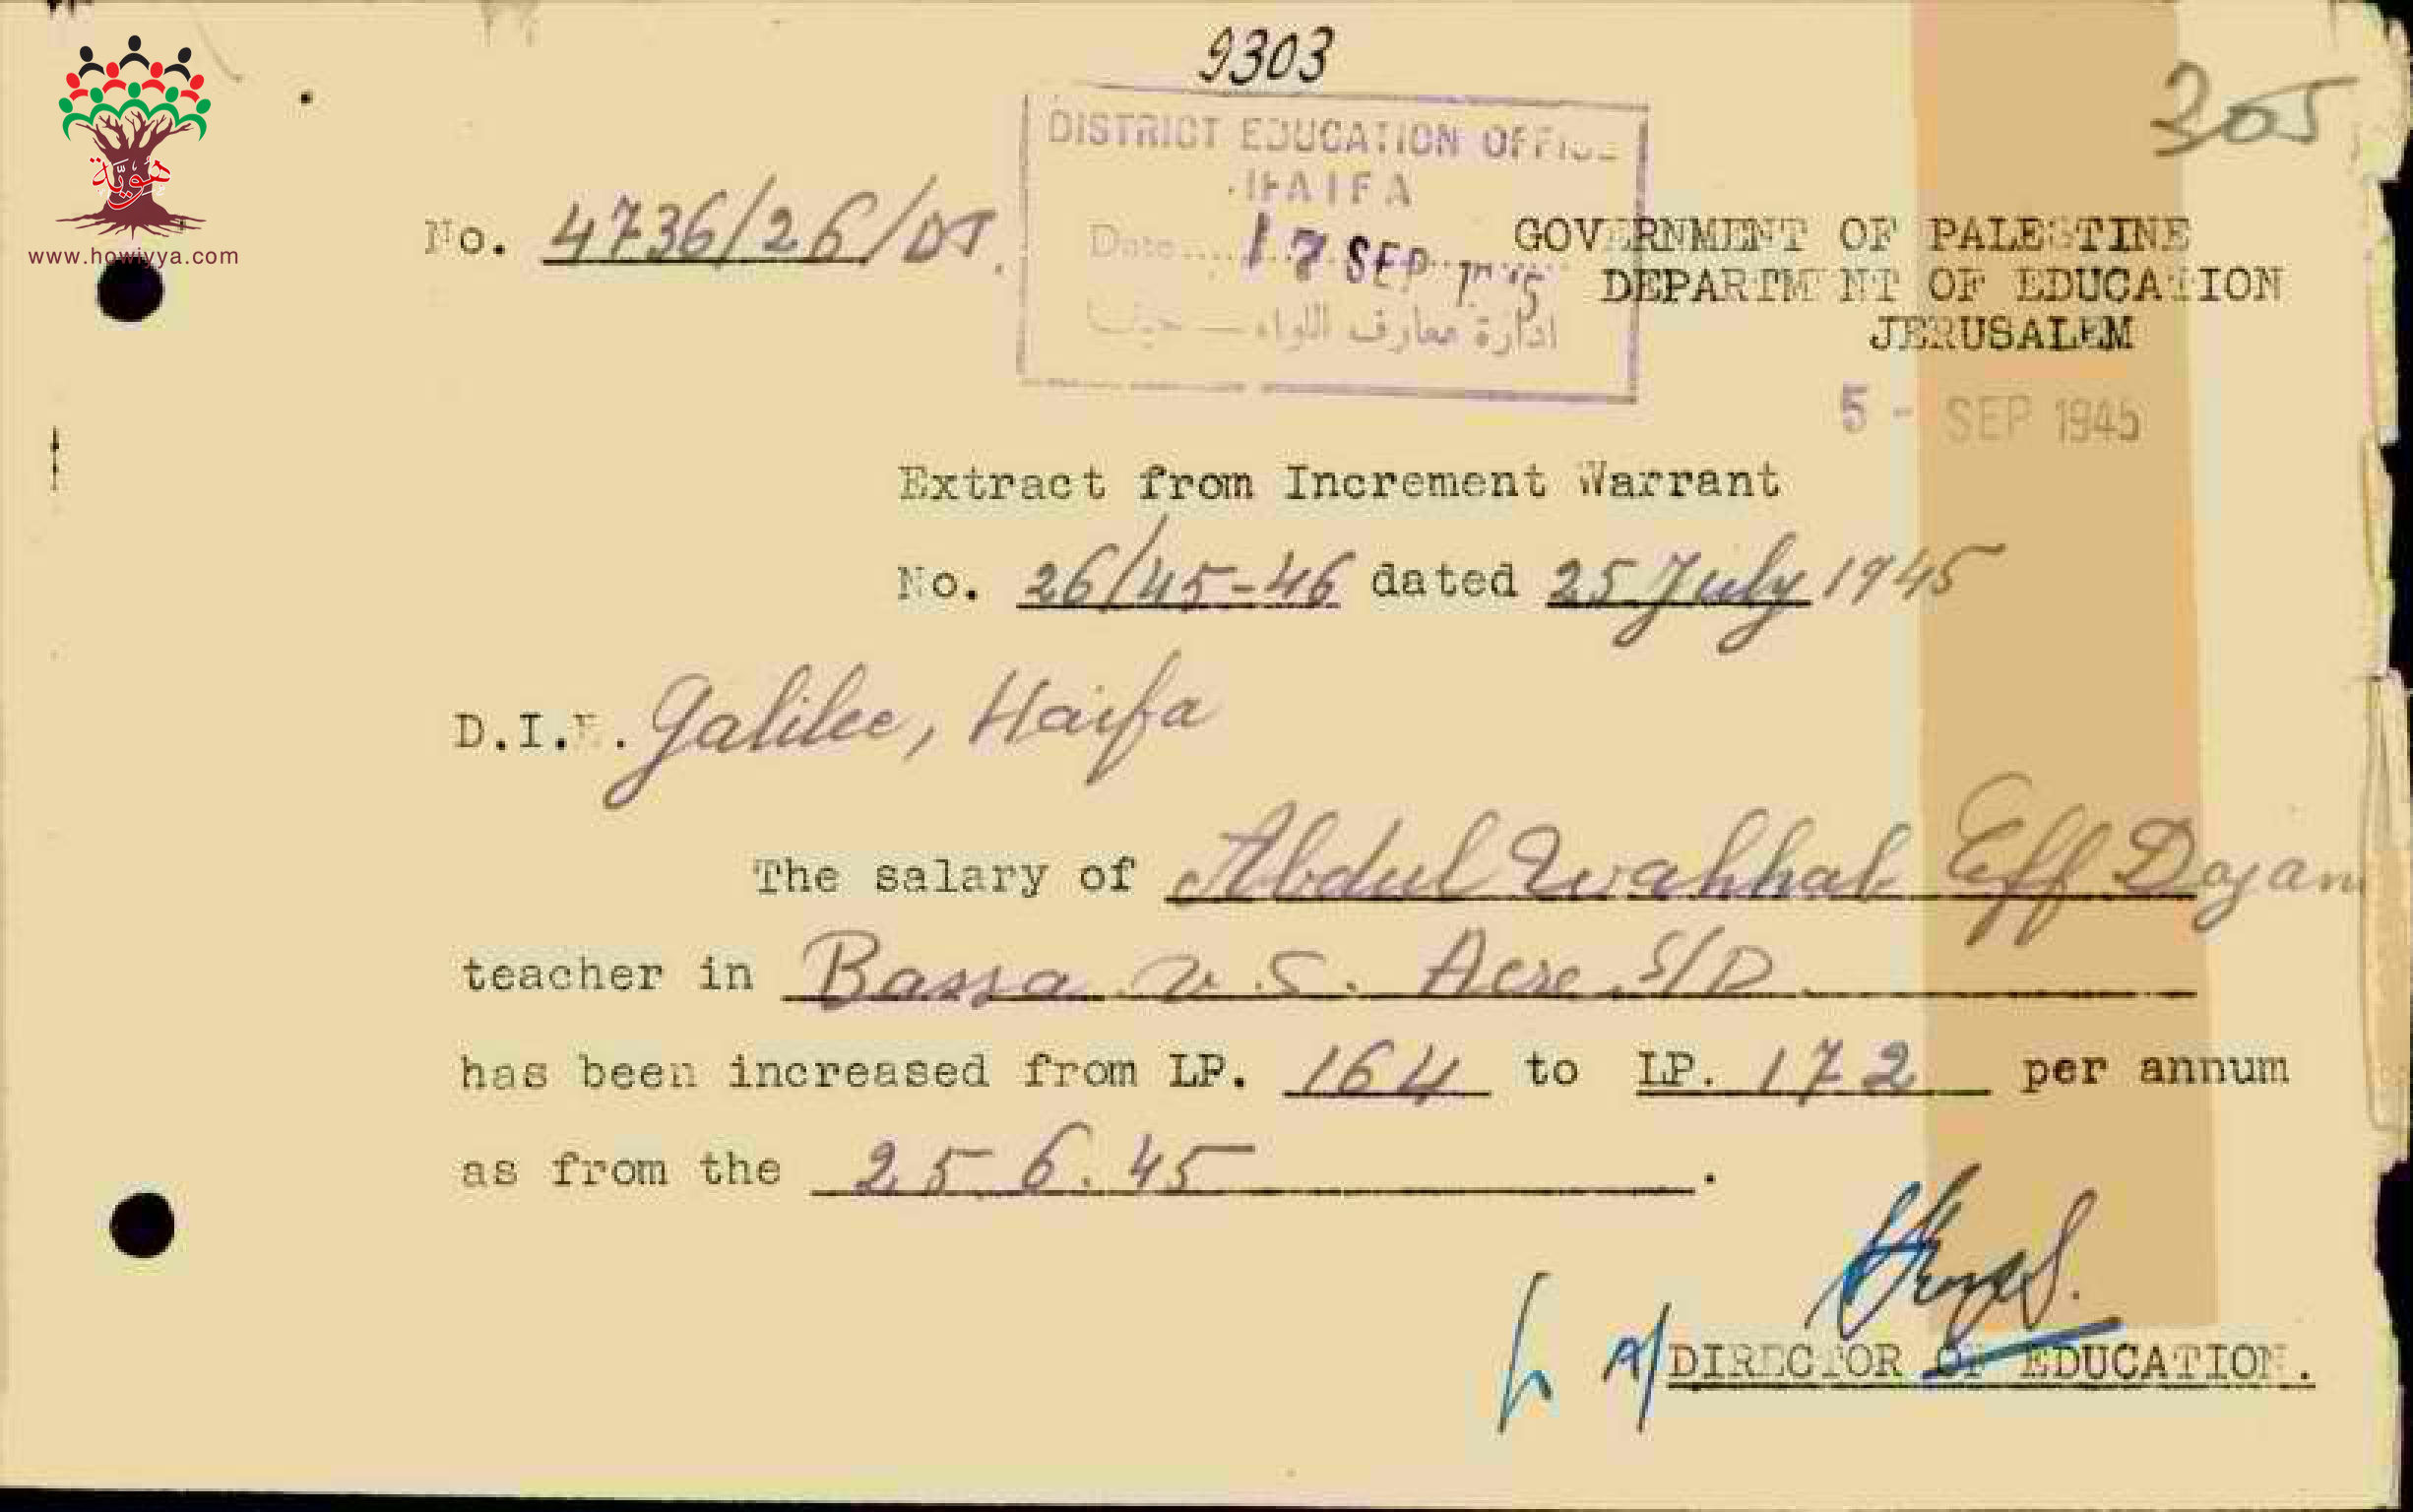 9303
305
هوية
www.howiyya.com
DISTRICT EDUCATION OFFICE
HAIFA
Date.... 17 SEP 1945
ادارة معارف اللواء — حيفا
No. 4736/26/DT.
GOVERNMENT OF PALESTINE
DEPARTMENT OF EDUCATION
JERUSALEM
5 - SEP 1945
Extract from Increment Warrant
No. 26/45-46 dated 25 July 1945
D.I.E. Galilee, Haifa
The salary of Abdul Wahhab Eff Dajani
teacher in Bassa v. S. Acre S/D
has been increased from LP. 164 to LP. 172 per annum
as from the 25.6.45.
A/DIRECTOR OF EDUCATION.